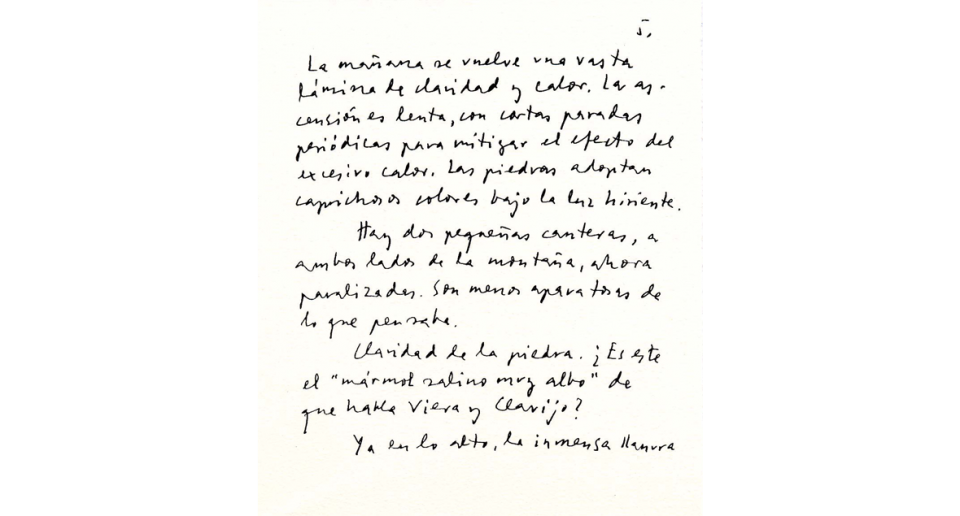 5.
La mañana se vuelve una vasta
lámina de claridad y calor. La as-
censión es lenta, con cortas paradas
periódicas para mitigar el efecto del
excesivo calor. Las piedras adoptan
caprichosos colores bajo la luz hiriente.
Hay dos pequeñas canteras, a
ambos lados de la montaña, ahora
paralizadas. Son menos aparatosas de
lo que pensaba.
Claridad de la piedra. ¿Es este
el "mármol salino muy albo" de
que habla Viera y Clavijo?
Ya en lo alto, la inmensa llanura